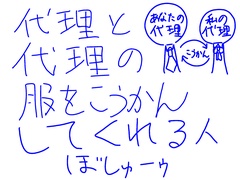 代理と
代理の
服をこうかん
してくれる人
ぼしゅーゥ
あなたの
代理
こうかん
私の
代理